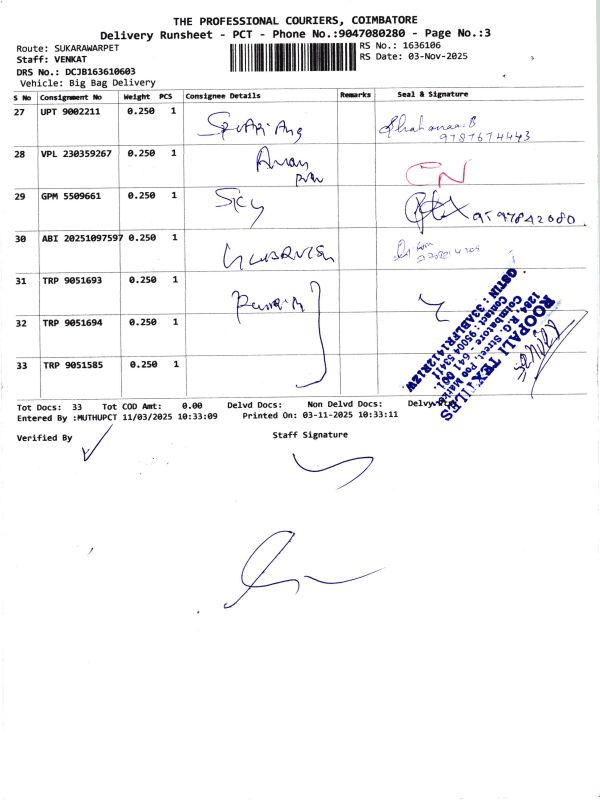 THE PROFESSIONAL COURIERS, COIMBATORE
Delivery Runsheet - PCT - Phone No.:9047080280 - Page No.:3
Route: SUKARAWARPET
RS No.: 1636106
Staff: VENKAT
RS Date: 03-Nov-2025
DRS No.: DCJB163610603
Vehicle: Big Bag Delivery
S No Consignment No Weight PCS Consignee Details Remarks Seal & Signature
27 UPT 9002211 0.250 1
9787674443
28 VPL 230359267 0.250 1
CN
29 GPM 5509661 0.250 1 Sky
9597842080
30 ABI 20251097597 0.250 1
31 TRP 9051693 0.250 1
32 TRP 9051694 0.250 1
33 TRP 9051585 0.250 1
ROOPALI TEXTILES
Coimbatore - 641 001.
Contact : 95004 53411
GSTIN : 33ABLFR1412R1ZW
Tot Docs: 33 Tot COD Amt: 0.00 Delvd Docs: Non Delvd Docs:
Entered By :MUTHUPCT 11/03/2025 10:33:09 Printed On: 03-11-2025 10:33:11
Verified By
Staff Signature